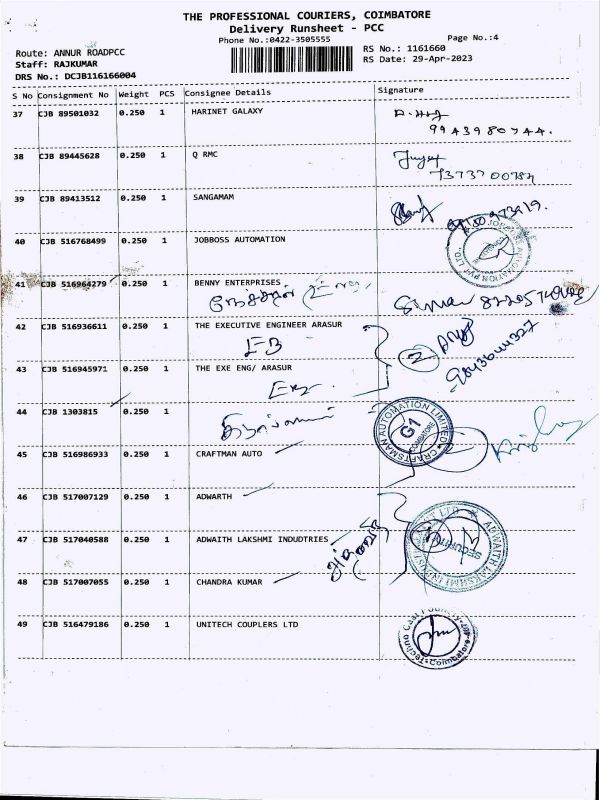 THE PROFESSIONAL COURIERS, COIMBATORE
Delivery Runsheet - PCC
Phone No.:0422-3505555
Page No.:4
Route: ANNUR ROADPCC
RS No.: 1161660
Staff: RAJKUMAR
RS Date: 29-Apr-2023
DRS No.: DCJB116166004
S No Consignment No Weight PCS Consignee Details Signature
37 CJB 89501032 0.250 1 HARINET GALAXY
9943980744.
38 CJB 89445628 0.250 1 Q RMC
39 CJB 89413512 0.250 1 SANGAMAM
40 CJB 516768499 0.250 1 JOBBOSS AUTOMATION
41 CJB 516964279 0.250 1 BENNY ENTERPRISES
42 CJB 516936611 0.250 1 THE EXECUTIVE ENGINEER ARASUR
EB
2
43 CJB 516945971 0.250 1 THE EXE ENG/ ARASUR
44 CJB 1303815 0.250 1
CRAFTSMAN AUTOMATION LIMITED
G1
COIMBATORE
45 CJB 516986933 0.250 1 CRAFTMAN AUTO
46 CJB 517007129 0.250 1 ADWARTH
47 CJB 517040588 0.250 1 ADWAITH LAKSHMI INDUDTRIES
ADWAITH LAKSHMI INDUSTRIES
SECURITY
48 CJB 517007055 0.250 1 CHANDRA KUMAR
49 CJB 516479186 0.250 1 UNITECH COUPLERS LTD
Coimbatore